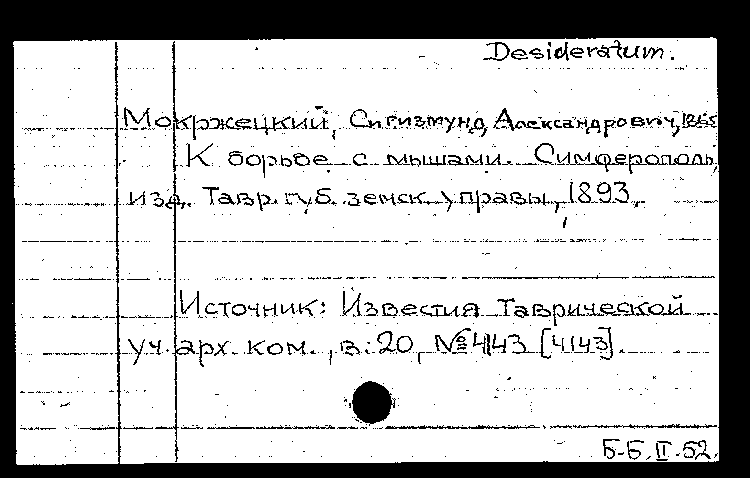 Desideratum.
Мокржецкий, Сигизмунд Александрович, 1865
К борьбе с мышами. Симферополь,
изд. Тавр. губ. земск. управы, 1893.
Источник: Известия Таврической
уч. арх. ком., в. 20, №4143 [4143].
Б-Б. II. 52.